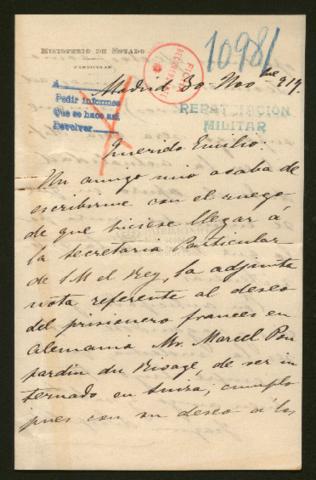 MINISTERIO DE ESTADO
PARTICULAR
10981
A
Pedir informes
Que se hace así
Devolver
Madrid 30 Nov bre 917.
REPATRIACION
MILITAR
Querido Emilio:
Un amigo mio acaba de
escribirme con el ruego
de que hiciese llegar á
la secretaria Particular
de S M el Rey, la adjunta
nota referente al deseo
del prisionero frances en
Alemania Mr. Marcel
jardin du Rivage, de ser in
ternado en Suiza; cumplo
pues con su deseo á los